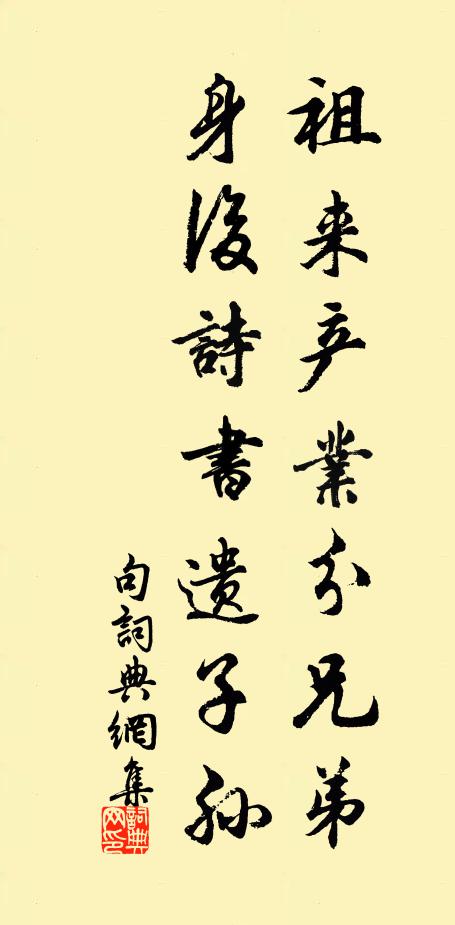 祖来产業分兄弟
身後詩書遺子孙
句詞典網集
詞典网印